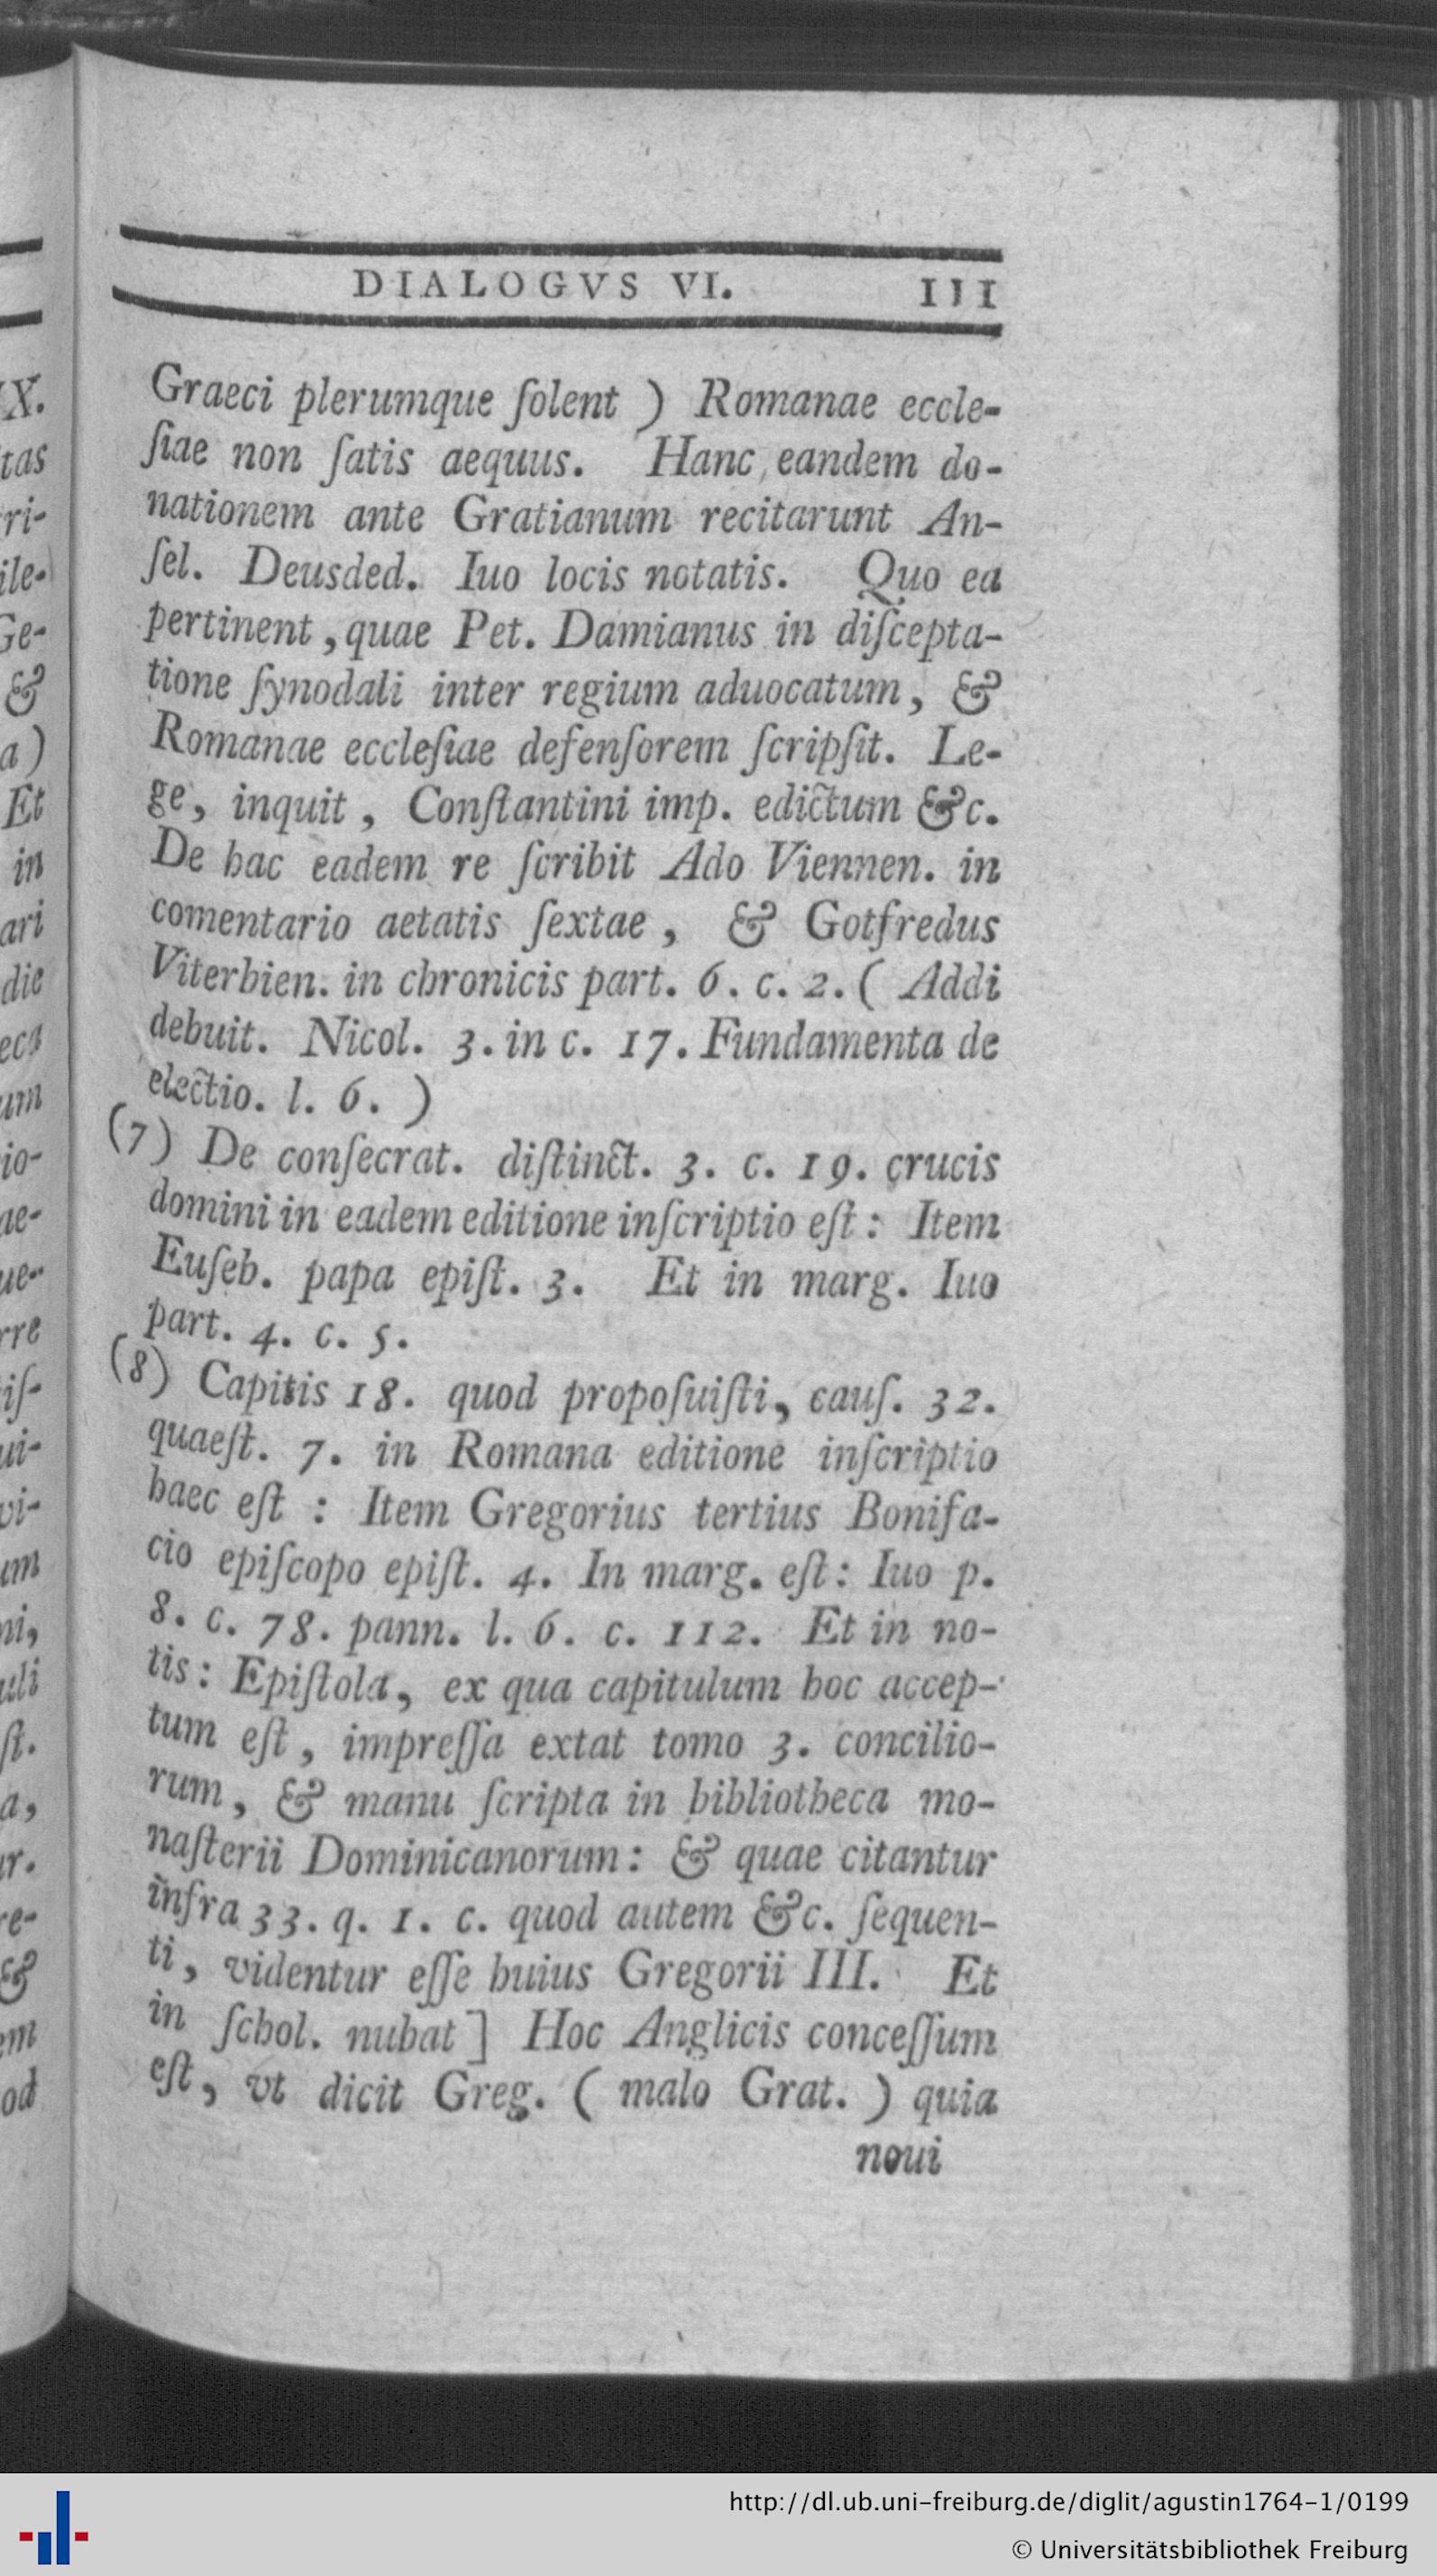 DIALOGVS VI. 111
Graeci plerumque ſolent ) Romanae eccle-
ſiae non ſatis aequus. Hanc eandem do-
nationem ante Gratianum recitarunt An-
ſel. Deusded. Iuo locis notatis. Quo ea
pertinent, quae Pet. Damianus in diſcepta-
tione ſynodali inter regium aduocatum, &
Romanae eccleſiae defenſorem ſcripſit. Le-
ge, inquit, Conſtantini imp. edictum &c.
De hac eadem re ſcribit Ado Viennen. in
comentario aetatis ſextae, & Gotfredus
Viterbien. in chronicis part. 6. c. 2. ( Addi
debuit. Nicol. 3. in c. 17. Fundamenta de
electio. l. 6. )
(7) De conſecrat. diſtinct. 3. c. 19. crucis
domini in eadem editione inſcriptio eſt: Item
Euſeb. papa epiſt. 3. Et in marg. Iuo
part. 4. c. 5.
(8) Capitis 18. quod propoſuiſti, cauſ. 32.
quaeſt. 7. in Romana editione inſcriptio
haec eſt : Item Gregorius tertius Bonifa-
cio epiſcopo epiſt. 4. In marg. eſt: Iuo p.
8. c. 78. pann. l. 6. c. 112. Et in no-
tis: Epiſtola, ex qua capitulum hoc accep-
tum eſt, impreſſa extat tomo 3. concilio-
rum, & manu ſcripta in bibliotheca mo-
naſterii Dominicanorum: & quae citantur
infra 33. q. 1. c. quod autem &c. ſequen-
ti, videntur eſſe huius Gregorii III. Et
in ſchol. nubat ] Hoc Anglicis conceſſum
eſt, vt dicit Greg. ( malo Grat. ) quia
noui
X.
tas
ri-
ile-
Ge-
&
a )
Et
in
ari
die
eca
um
io-
ae-
ue-
rre
iſ-
ui-
vi-
um
ni,
uli
ſt.
a,
r.
re-
&
em
od
http://dl.ub.uni-freiburg.de/diglit/agustin1764-1/0199
© Universitätsbibliothek Freiburg